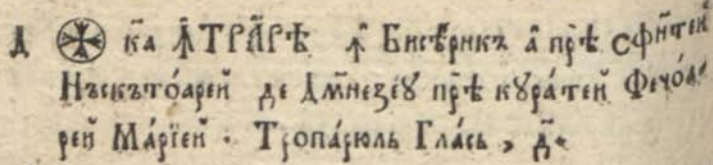 Д ка Ꙟ҆ТРА́РѢ ꙟ҆ Бисѣ́рикъ а҆ прѣ сфи́нтей
Нъскъто́арей де Дмнезе́ꙋ прѣ кꙋра́тей Фечо́а
рей Мари́ей · Тропа́рюль Гла́сь , д҃ ·